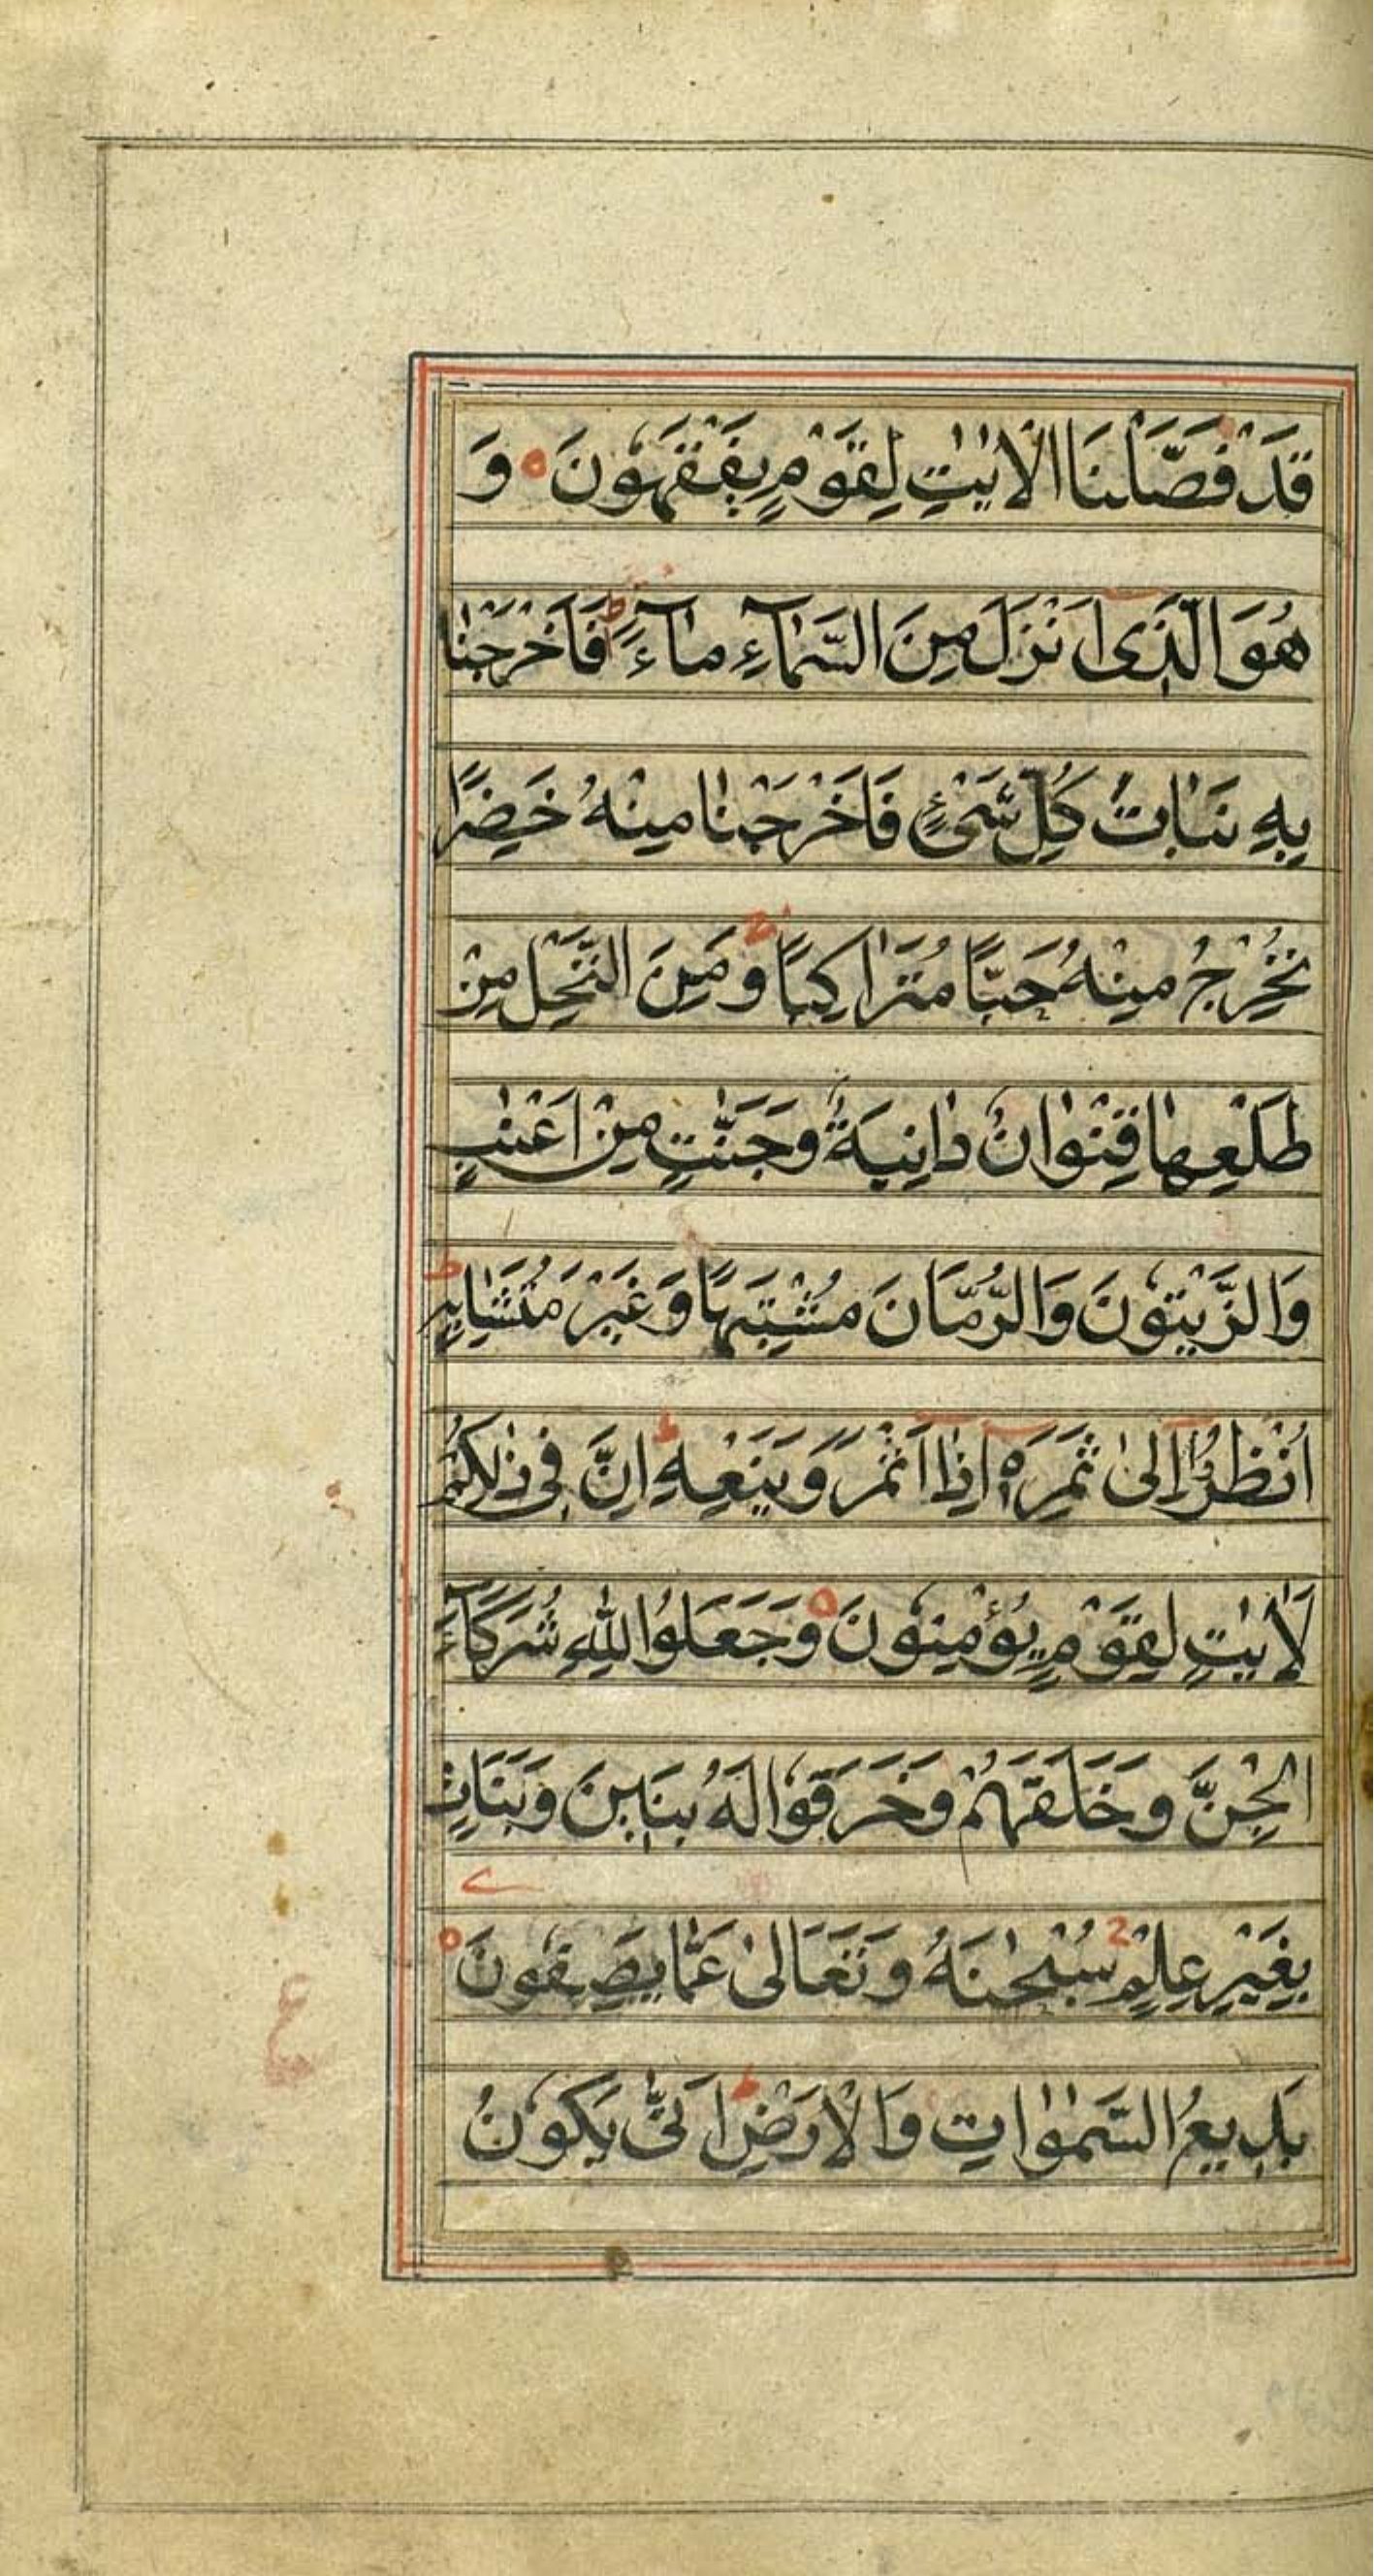 قَدْ فَصَّلْنَا الْاٰيٰتِ لِقَوْمٍ يَفْقَهُونَ ۝ وَ
هُوَ الَّذِى اَنْزَلَ مِنَ السَّمَاۤءِ مَاۤءً ط فَاَخْرَجْنَا
بِهِ نَبَاتَ كُلِّ شَىْءٍ فَاَخْرَجْنَا مِنْهُ خَضِرًا
نُخْرِجُ مِنْهُ حَبًّا مُتَرَاكِبًا ج وَمِنَ النَّخْلِ مِنْ
طَلْعِهَا قِنْوَانٌ دَانِيَةٌ وَجَنّٰتٍ مِنْ اَعْنٰبٍ
وَالزَّيْتُونَ وَالرُّمَّانَ مُشْتَبِهًا وَغَيْرَ مُتَشَابِهٍ ط
اُنْظُرُوا اِلىٰ ثَمَرِهٖ اِذَا اَثْمَرَ وَيَنْعِهِ ط اِنَّ فِى ذٰلِكُمْ
لَاٰيٰتٍ لِقَوْمٍ يُؤْمِنُونَ ۝ وَجَعَلُوا لِلّٰهِ شُرَكَاۤءَ
الْجِنَّ وَخَلَقَهُمْ وَخَرَقُوا لَهُ بَنِينَ وَبَنَاتٍ
بِغَيْرِ عِلْمٍ ج سُبْحٰنَهُ وَتَعَالىٰ عَمَّا يَصِفُونَ ۝
بَدِيعُ السَّمٰوَاتِ وَالْاَرْضِ ط اَنّٰى يَكُونُ
ع